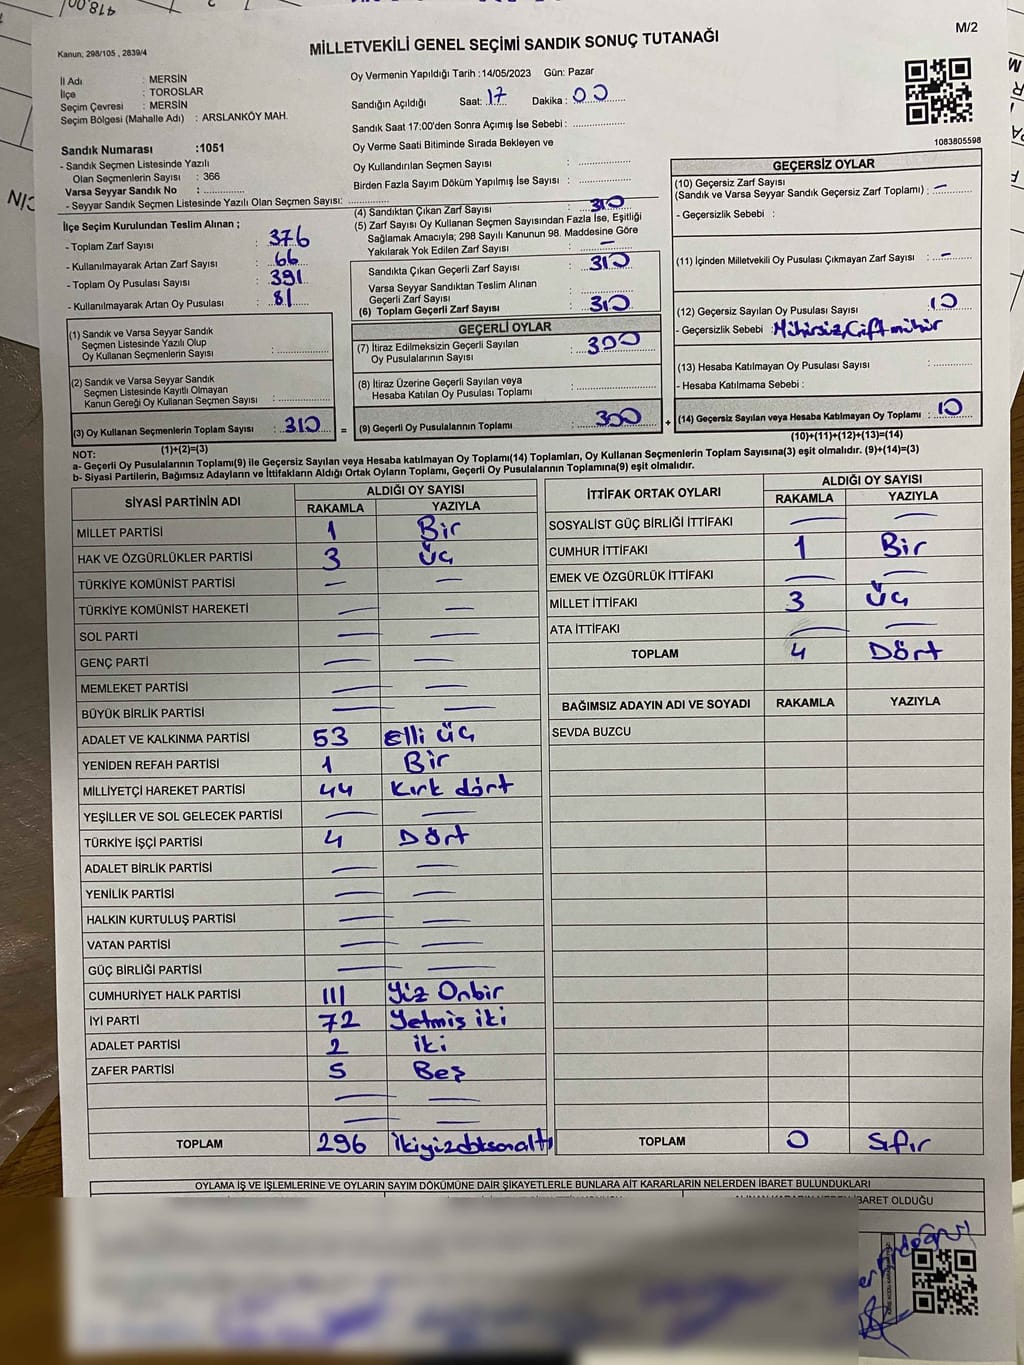 418,00
M/2
Kanun; 298/105 , 2839/4
MİLLETVEKİLİ GENEL SEÇİMİ SANDIK SONUÇ TUTANAĞI
İl Adı : MERSİN
İlçe : TOROSLAR
Seçim Çevresi : MERSİN
Seçim Bölgesi (Mahalle Adı) : ARSLANKÖY MAH.
Sandık Numarası :1051
- Sandık Seçmen Listesinde Yazılı
Olan Seçmenlerin Sayısı : 366
Varsa Seyyar Sandık No :
- Seyyar Sandık Seçmen Listesinde Yazılı Olan Seçmen Sayısı:
Oy Vermenin Yapıldığı Tarih :14/05/2023 Gün: Pazar
Sandığın Açıldığı Saat: 17 Dakika : 00
Sandık Saat 17:00'den Sonra Açımış İse Sebebi :
Oy Verme Saati Bitiminde Sırada Bekleyen ve
Oy Kullandırılan Seçmen Sayısı :
Birden Fazla Sayım Döküm Yapılmış İse Sayısı :
1083805598
İlçe Seçim Kurulundan Teslim Alınan ;
- Toplam Zarf Sayısı : 376
- Kullanılmayarak Artan Zarf Sayısı : 66
- Toplam Oy Pusulası Sayısı : 391
- Kullanılmayarak Artan Oy Pusulası : 81
(1) Sandık ve Varsa Seyyar Sandık
Seçmen Listesinde Yazılı Olup
Oy Kullanan Seçmenlerin Sayısı :
(2) Sandık ve Varsa Seyyar Sandık
Seçmen Listesinde Kayıtlı Olmayan
Kanun Gereği Oy Kullanan Seçmen Sayısı :
(3) Oy Kullanan Seçmenlerin Toplam Sayısı : 310 =
(1)+(2)=(3)
(4) Sandıktan Çıkan Zarf Sayısı : 310
(5) Zarf Sayısı Oy Kullanan Seçmen Sayısından Fazla İse, Eşitliği
Sağlamak Amacıyla; 298 Sayılı Kanunun 98. Maddesine Göre
Yakılarak Yok Edilen Zarf Sayısı : —
Sandıkta Çıkan Geçerli Zarf Sayısı : 310
Varsa Seyyar Sandıktan Teslim Alınan
Geçerli Zarf Sayısı :
(6) Toplam Geçerli Zarf Sayısı : 310
GEÇERLİ OYLAR
(7) İtiraz Edilmeksizin Geçerli Sayılan
Oy Pusulalarının Sayısı : 300
(8) İtiraz Üzerine Geçerli Sayılan veya
Hesaba Katılan Oy Pusulası Toplamı :
(9) Geçerli Oy Pusulalarının Toplamı : 300 +
GEÇERSİZ OYLAR
(10) Geçersiz Zarf Sayısı
(Sandık ve Varsa Seyyar Sandık Geçersiz Zarf Toplamı) : —
- Geçersizlik Sebebi :
(11) İçinden Milletvekili Oy Pusulası Çıkmayan Zarf Sayısı : —
(12) Geçersiz Sayılan Oy Pusulası Sayısı : 10
- Geçersizlik Sebebi : Mühürsiz, Çift mühür
(13) Hesaba Katılmayan Oy Pusulası Sayısı :
- Hesaba Katılmama Sebebi :
(14) Geçersiz Sayılan veya Hesaba Katılmayan Oy Toplamı : 10
(10)+(11)+(12)+(13)=(14)
NOT:
a- Geçerli Oy Pusulalarının Toplamı(9) ile Geçersiz Sayılan veya Hesaba Katılmayan Oy Toplamı(14) Toplamları, Oy Kullanan Seçmenlerin Toplam Sayısına(3) eşit olmalıdır. (9)+(14)=(3)
b- Siyasi Partilerin, Bağımsız Adayların ve İttifakların Aldığı Ortak Oyların Toplamı, Geçerli Oy Pusulalarının Toplamına(9) eşit olmalıdır.
SİYASİ PARTİNİN ADI ALDIĞI OY SAYISI
RAKAMLA YAZIYLA
MİLLET PARTİSİ 1 Bir
HAK VE ÖZGÜRLÜKLER PARTİSİ 3 Üç
TÜRKİYE KOMÜNİST PARTİSİ — —
TÜRKİYE KOMÜNİST HAREKETİ — —
SOL PARTİ — —
GENÇ PARTİ — —
MEMLEKET PARTİSİ — —
BÜYÜK BİRLİK PARTİSİ — —
ADALET VE KALKINMA PARTİSİ 53 Elli üç
YENİDEN REFAH PARTİSİ 1 Bir
MİLLİYETÇİ HAREKET PARTİSİ 44 Kırk dört
YEŞİLLER VE SOL GELECEK PARTİSİ — —
TÜRKİYE İŞÇİ PARTİSİ 4 Dört
ADALET BİRLİK PARTİSİ — —
YENİLİK PARTİSİ — —
HALKIN KURTULUŞ PARTİSİ — —
VATAN PARTİSİ — —
GÜÇ BİRLİĞİ PARTİSİ — —
CUMHURİYET HALK PARTİSİ 111 Yüz Onbir
İYİ PARTİ 72 Yetmiş iki
ADALET PARTİSİ 2 iki
ZAFER PARTİSİ 5 Beş
— —
— —
TOPLAM 296 ikiyüzdoksanaltı
İTTİFAK ORTAK OYLARI ALDIĞI OY SAYISI
RAKAMLA YAZIYLA
SOSYALİST GÜÇ BİRLİĞİ İTTİFAKI — —
CUMHUR İTTİFAKI 1 Bir
EMEK VE ÖZGÜRLÜK İTTİFAKI — —
MİLLET İTTİFAKI 3 Üç
ATA İTTİFAKI — —
TOPLAM 4 Dört
BAĞIMSIZ ADAYIN ADI VE SOYADI RAKAMLA YAZIYLA
SEVDA BUZCU
TOPLAM 0 Sıfır
OYLAMA İŞ VE İŞLEMLERİNE VE OYLARIN SAYIM DÖKÜMÜNE DAİR ŞİKAYETLERLE BUNLARA AİT KARARLARIN NELERDEN İBARET BULUNDUKLARI
İBARET OLDUĞU